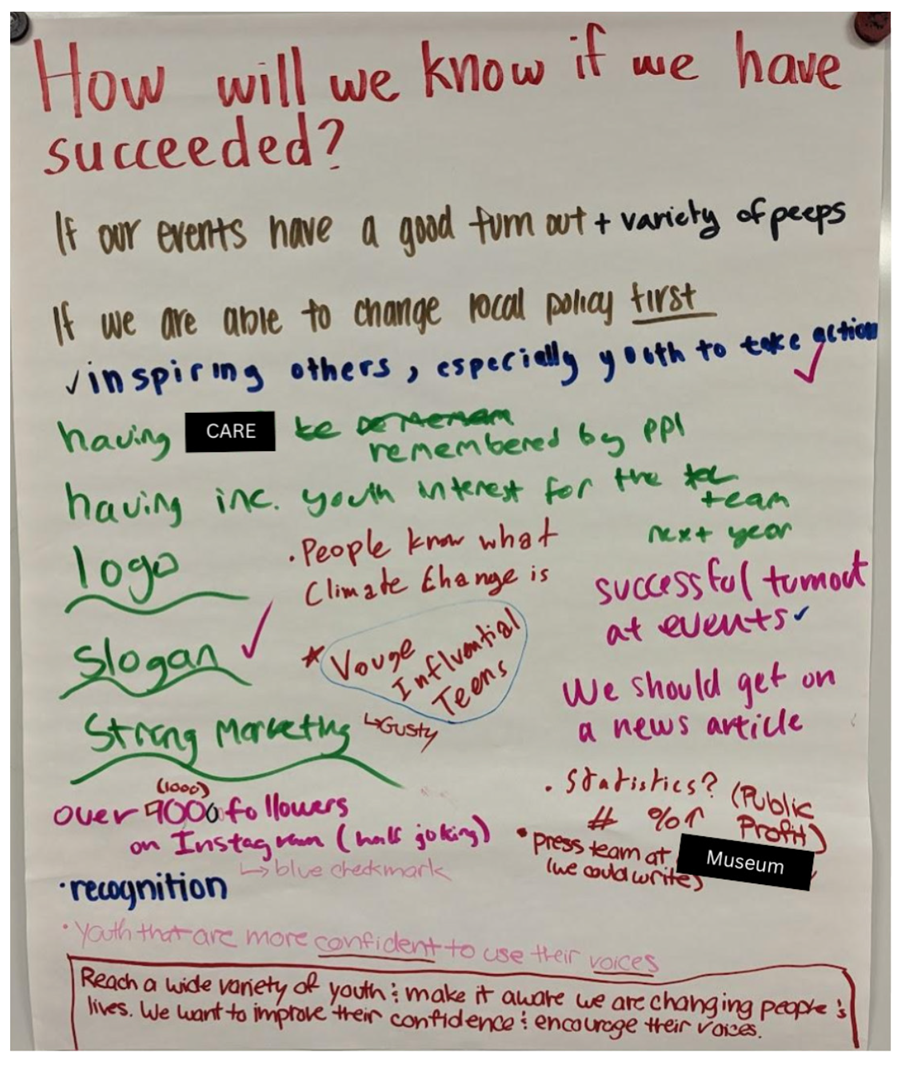 How will we know if we have
succeeded?
If our events have a good turn out + variety of peeps
If we are able to change local policy first
✓inspiring others, especially youth to take action ✓
having CARE be
remembered by ppl
having inc. youth interest for the
team
next year
logo
Slogan ✓
Strong Marketing
• People know what
Climate Change is
* Vouge
Influential
Teens
↳Gusty
successful turnout
at events✓
We should get on
a news article
(1000)
over 9000 followers
on Instagram (half joking)
↳ blue checkmark
• Statistics? (Public
# %↑ Profit)
• press team at Museum
(we could write)
• recognition
• Youth that are more confident to use their voices
Reach a wide variety of youth & make it aware we are changing people &
lives. We want to improve their confidence & encourage their voices.